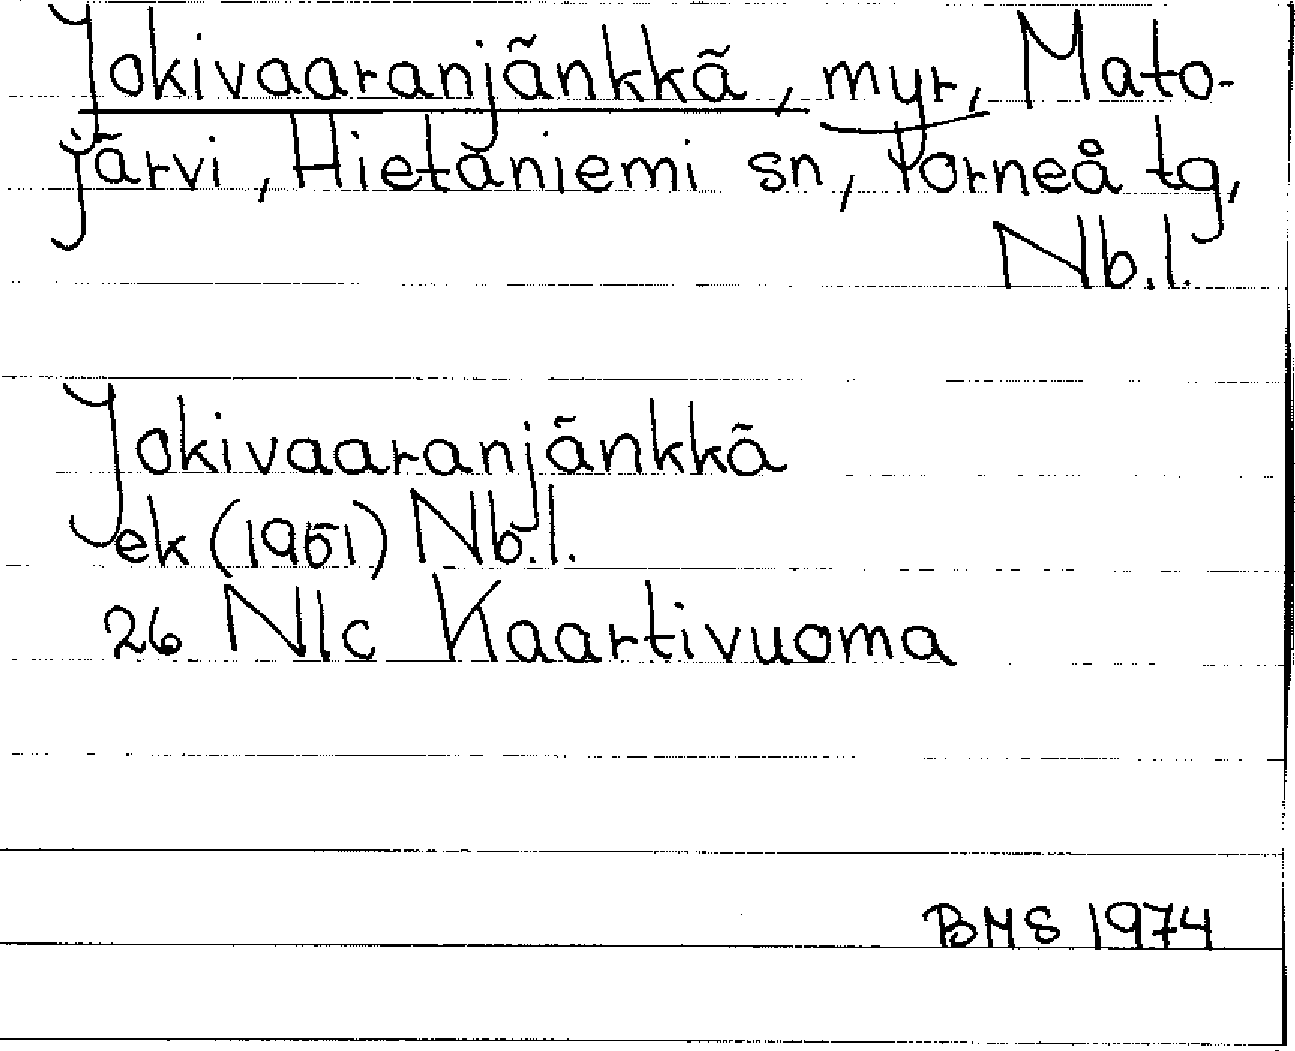 Jokivaaranjänkkä, myr, Mato-
järvi, Hietaniemi sn, Torneå tg,
Nb.l.
Jokivaaranjänkkä
ek (1961) Nb.l.
26 N1c Kaartivuoma
BMS 1974